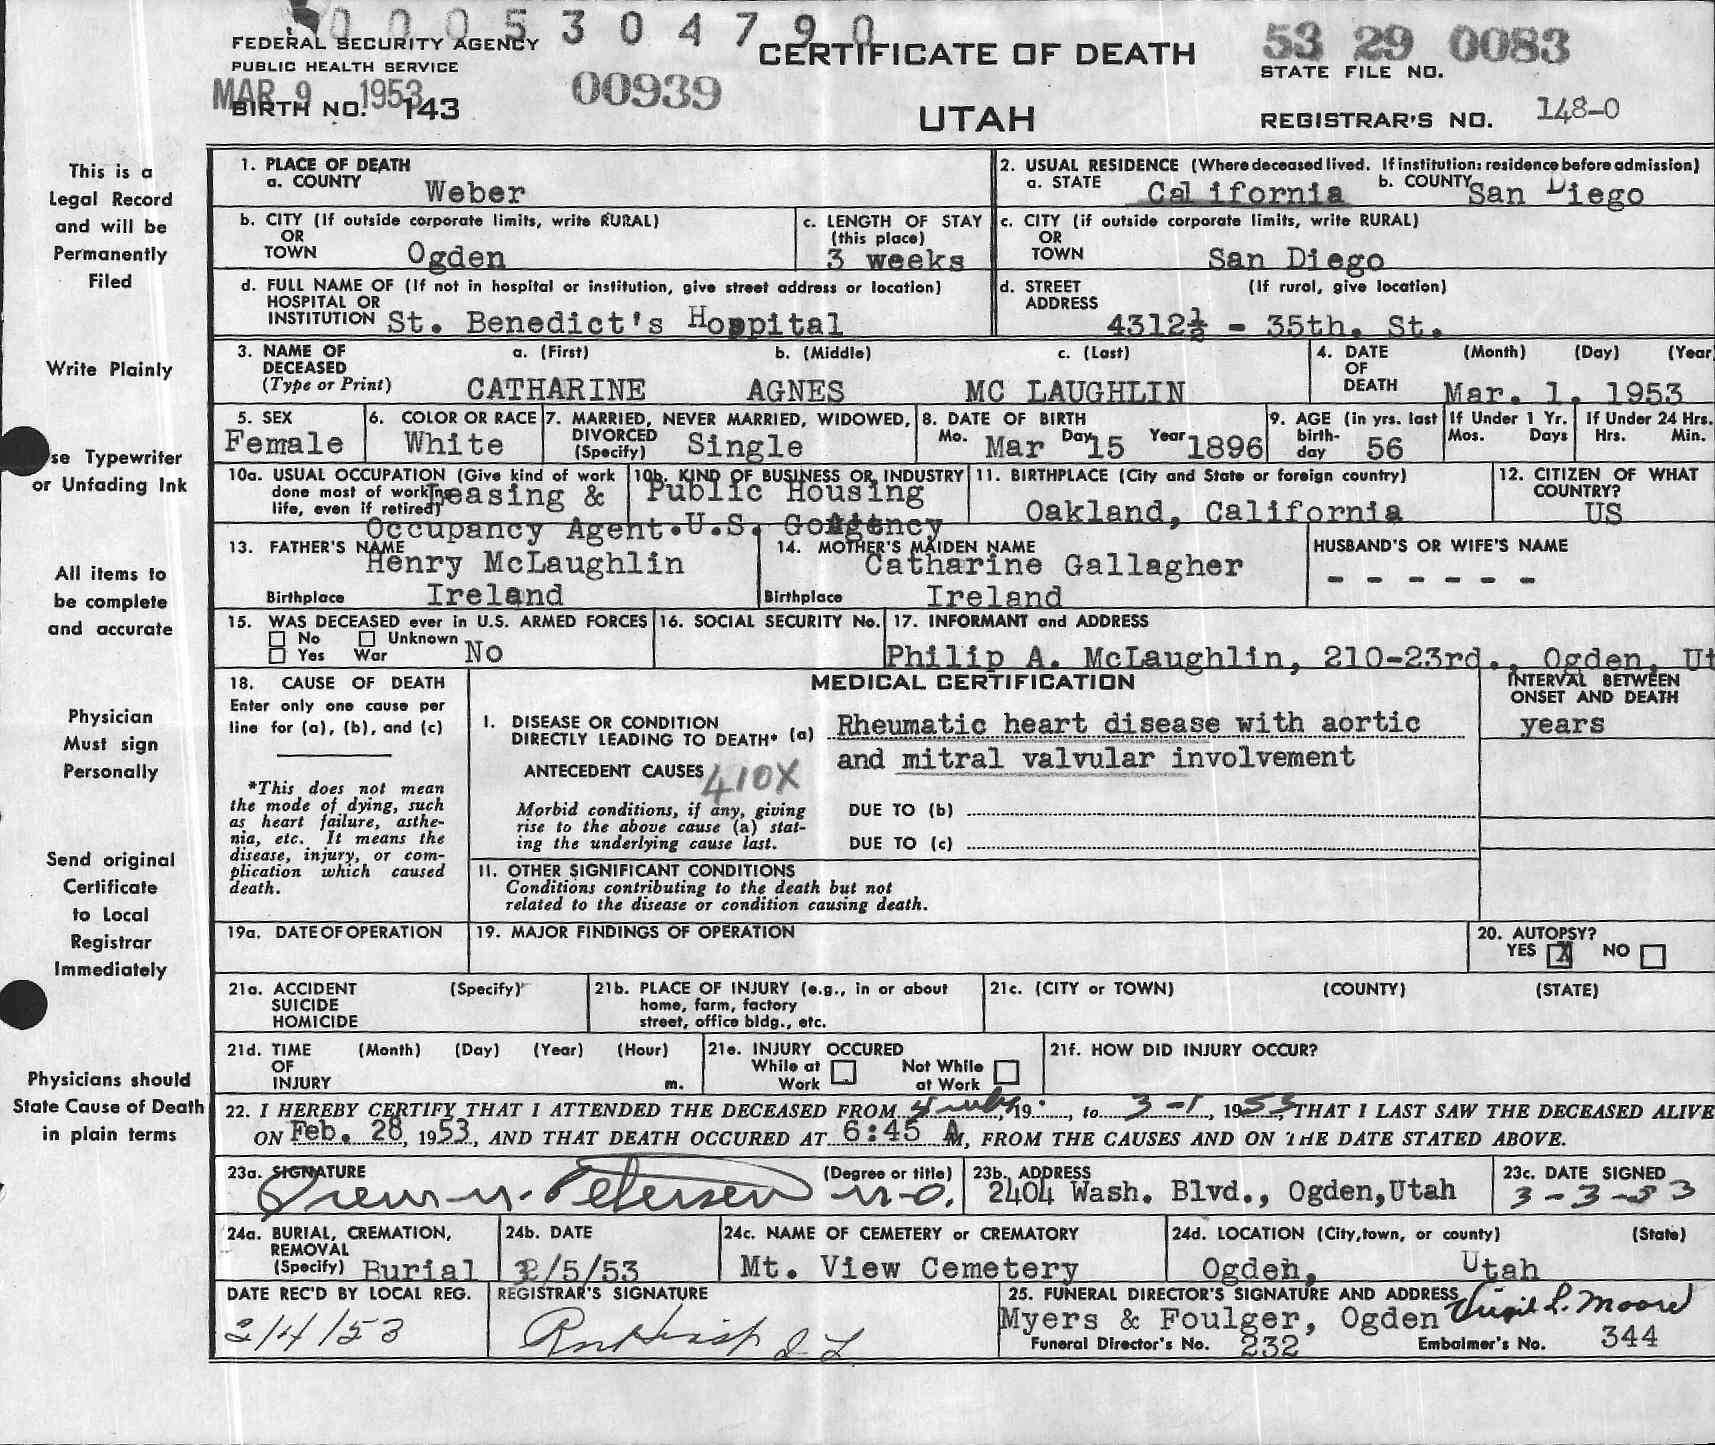 0005304790
FEDERAL SECURITY AGENCY
PUBLIC HEALTH SERVICE
MAR 9 1953
BIRTH NO. 143
00939
CERTIFICATE OF DEATH
UTAH
53 29 0083
STATE FILE NO.
REGISTRAR'S NO. 148-0
This is a
Legal Record
and will be
Permanently
Filed
Write Plainly
se Typewriter
or Unfading Ink
All items to
be complete
and accurate
Physician
Must sign
Personally
Send original
Certificate
to Local
Registrar
Immediately
Physicians should
State Cause of Death
in plain terms
1. PLACE OF DEATH
a. COUNTY Weber
2. USUAL RESIDENCE (Where deceased lived. If institution: residence before admission)
a. STATE California b. COUNTY San Diego
b. CITY (If outside corporate limits, write RURAL)
OR
TOWN Ogden
c. LENGTH OF STAY
(this place)
3 weeks
c. CITY (if outside corporate limits, write RURAL)
OR
TOWN San Diego
d. FULL NAME OF (If not in hospital or institution, give street address or location)
HOSPITAL OR
INSTITUTION St. Benedict's Hospital
d. STREET (If rural, give location)
ADDRESS
4312½ - 35th. St.
3. NAME OF a. (First) b. (Middle) c. (Last)
DECEASED
(Type or Print) CATHARINE AGNES MC LAUGHLIN
4. DATE (Month) (Day) (Year
OF
DEATH Mar. 1. 1953
5. SEX
Female
6. COLOR OR RACE
White
7. MARRIED, NEVER MARRIED, WIDOWED,
DIVORCED
(Specify) Single
8. DATE OF BIRTH
Mo. Mar Day 15 Year 1896
9. AGE (in yrs. last
birth-
day 56
If Under 1 Yr.
Mos. Days
If Under 24 Hrs.
Hrs. Min.
10a. USUAL OCCUPATION (Give kind of work
done most of working
life, even if retired) Leasing &
Occupancy Agent.
10b. KIND OF BUSINESS OR INDUSTRY
Public Housing
U.S. Go Agency
11. BIRTHPLACE (City and State or foreign country)
Oakland, California
12. CITIZEN OF WHAT
COUNTRY?
US
13. FATHER'S NAME
Henry McLaughlin
Birthplace Ireland
14. MOTHER'S MAIDEN NAME
Catharine Gallagher
Birthplace Ireland
HUSBAND'S OR WIFE'S NAME
- - - - - -
15. WAS DECEASED ever in U.S. ARMED FORCES
No Unknown
Yes War No
16. SOCIAL SECURITY No.
17. INFORMANT and ADDRESS
Philip A. McLaughlin, 210-23rd., Ogden, Ut
18. CAUSE OF DEATH
Enter only one cause per
line for (a), (b), and (c)
*This does not mean
the mode of dying, such
as heart failure, asthe-
nia, etc. It means the
disease, injury, or com-
plication which caused
death.
MEDICAL CERTIFICATION
INTERVAL BETWEEN
ONSET AND DEATH
I. DISEASE OR CONDITION
DIRECTLY LEADING TO DEATH* (a) Rheumatic heart disease with aortic years
and mitral valvular involvement
ANTECEDENT CAUSES 410X
Morbid conditions, if any, giving
rise to the above cause (a) stat-
ing the underlying cause last.
DUE TO (b)
DUE TO (c)
II. OTHER SIGNIFICANT CONDITIONS
Conditions contributing to the death but not
related to the disease or condition causing death.
19a. DATE OF OPERATION
19. MAJOR FINDINGS OF OPERATION
20. AUTOPSY?
YES X NO
21a. ACCIDENT (Specify)
SUICIDE
HOMICIDE
21b. PLACE OF INJURY (e.g., in or about
home, farm, factory
street, office bldg., etc.
21c. (CITY or TOWN) (COUNTY) (STATE)
21d. TIME (Month) (Day) (Year) (Hour)
OF
INJURY m.
21e. INJURY OCCURED
While at Not While
Work at Work
21f. HOW DID INJURY OCCUR?
22. I HEREBY CERTIFY THAT I ATTENDED THE DECEASED FROM 19 , to 3-1, 1953, THAT I LAST SAW THE DECEASED ALIVE
ON Feb. 28, 1953, AND THAT DEATH OCCURED AT 6:45 A M, FROM THE CAUSES AND ON THE DATE STATED ABOVE.
23a. SIGNATURE (Degree or title)
Drew M. Petersen M.D.
23b. ADDRESS
2404 Wash. Blvd., Ogden, Utah
23c. DATE SIGNED
3-3-53
24a. BURIAL, CREMATION,
REMOVAL
(Specify) Burial
24b. DATE
/5/53
24c. NAME OF CEMETERY or CREMATORY
Mt. View Cemetery
24d. LOCATION (City, town, or county) (State)
Ogden, Utah
DATE REC'D BY LOCAL REG.
3/4/53
REGISTRAR'S SIGNATURE
25. FUNERAL DIRECTOR'S SIGNATURE AND ADDRESS
Myers & Foulger, Ogden Virgil L. Moore
Funeral Director's No. 232 Embalmer's No. 344